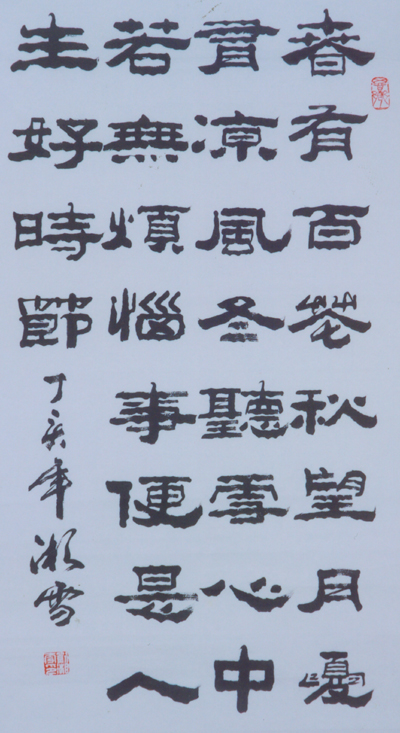 春有百花秋望月夏
有凉風冬聽雪心中
若無煩惱事便是人
生好時節
丁亥年